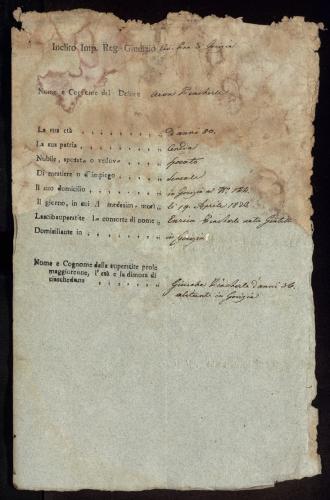 Inclito Imp. Reg. Giudizio Civ. Prov. di Gorizia
Nome e Cognome del Defonto Aron Pincherle
La sua età d'anni 80.
La sua patria
Nubile, sposato o vedovo sposato
Di mestiere o d'impiego sensale
Il suo domicilio in Gorizia al No.
Il giorno, in cui il medesimo morì li 19. Aprile 1832
Lascia superstite la consorte di nome Pincherle nata
Domiciliante in in Gorizia
Nome e Cognome della superstite prole
maggiorenne, l'età e la dimora di
ciaschedano Giuseppe Pincherle d'anni 36.
abitante in Gorizia